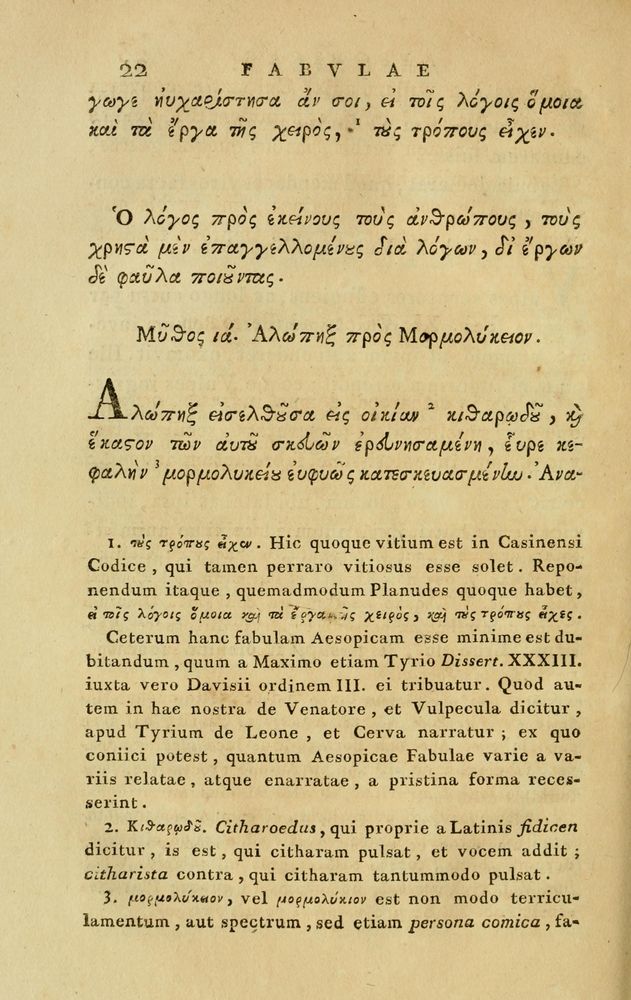 22 FABVLAE
γωγε ηυχαρίστησα ἄν σοι, εἰ τοῖς λόγοις ὅμοια
καὶ τὰ ἔργα τῆς χειρὸς, ¹ τοὺς τρόπους εἶχεν.
Ὁ λόγος πρὸς ἐκείνους τοὺς ἀνθρώπους, τοὺς
χρηστὰ μὲν ἐπαγγελλομένους διὰ λόγων, δἰ ἔργων
δὲ φαῦλα ποιοῦντας.
Μῦθος ιά. Ἀλώπηξ πρὸς Μορμολύκειον.
Ἀλώπηξ εἰσελθοῦσα εἰς οἰκίαν ² κιθαρῳδοῦ, καὶ
ἕκαστον τῶν ἀυτοῦ σκευῶν ἐρευνησαμένη, ἕυρε κε-
φαλὴν ³ μορμολυκείου ἐυφυῶς κατεσκευασμένην. Ἀνα-
1. τοὺς τρόπους εἶχεν. Hic quoque vitium est in Casinensi
Codice, qui tamen perraro vitiosus esse solet. Repo-
nendum itaque, quemadmodum Planudes quoque habet,
εἰ τοῖς λόγοις ὅμοια καὶ τὰ ἔργα τῆς χειρὸς, καὶ τοὺς τρόπους εἶχες.
Ceterum hanc fabulam Aesopicam esse minime est du-
bitandum, quum a Maximo etiam Tyrio Dissert. XXXIII.
iuxta vero Davisii ordinem III. ei tribuatur. Quod au-
tem in hae nostra de Venatore, et Vulpecula dicitur,
apud Tyrium de Leone, et Cerva narratur; ex quo
coniici potest, quantum Aesopicae Fabulae varie a va-
riis relatae, atque enarratae, a pristina forma reces-
serint.
2. Κιθαρῳδοῦ. Citharoedus, qui proprie a Latinis fidicen
dicitur, is est, qui citharam pulsat, et vocem addit;
citharista contra, qui citharam tantummodo pulsat.
3. μορμολύκειον, vel μορμολύκιον est non modo terricu-
lamentum, aut spectrum, sed etiam persona comica, fa-